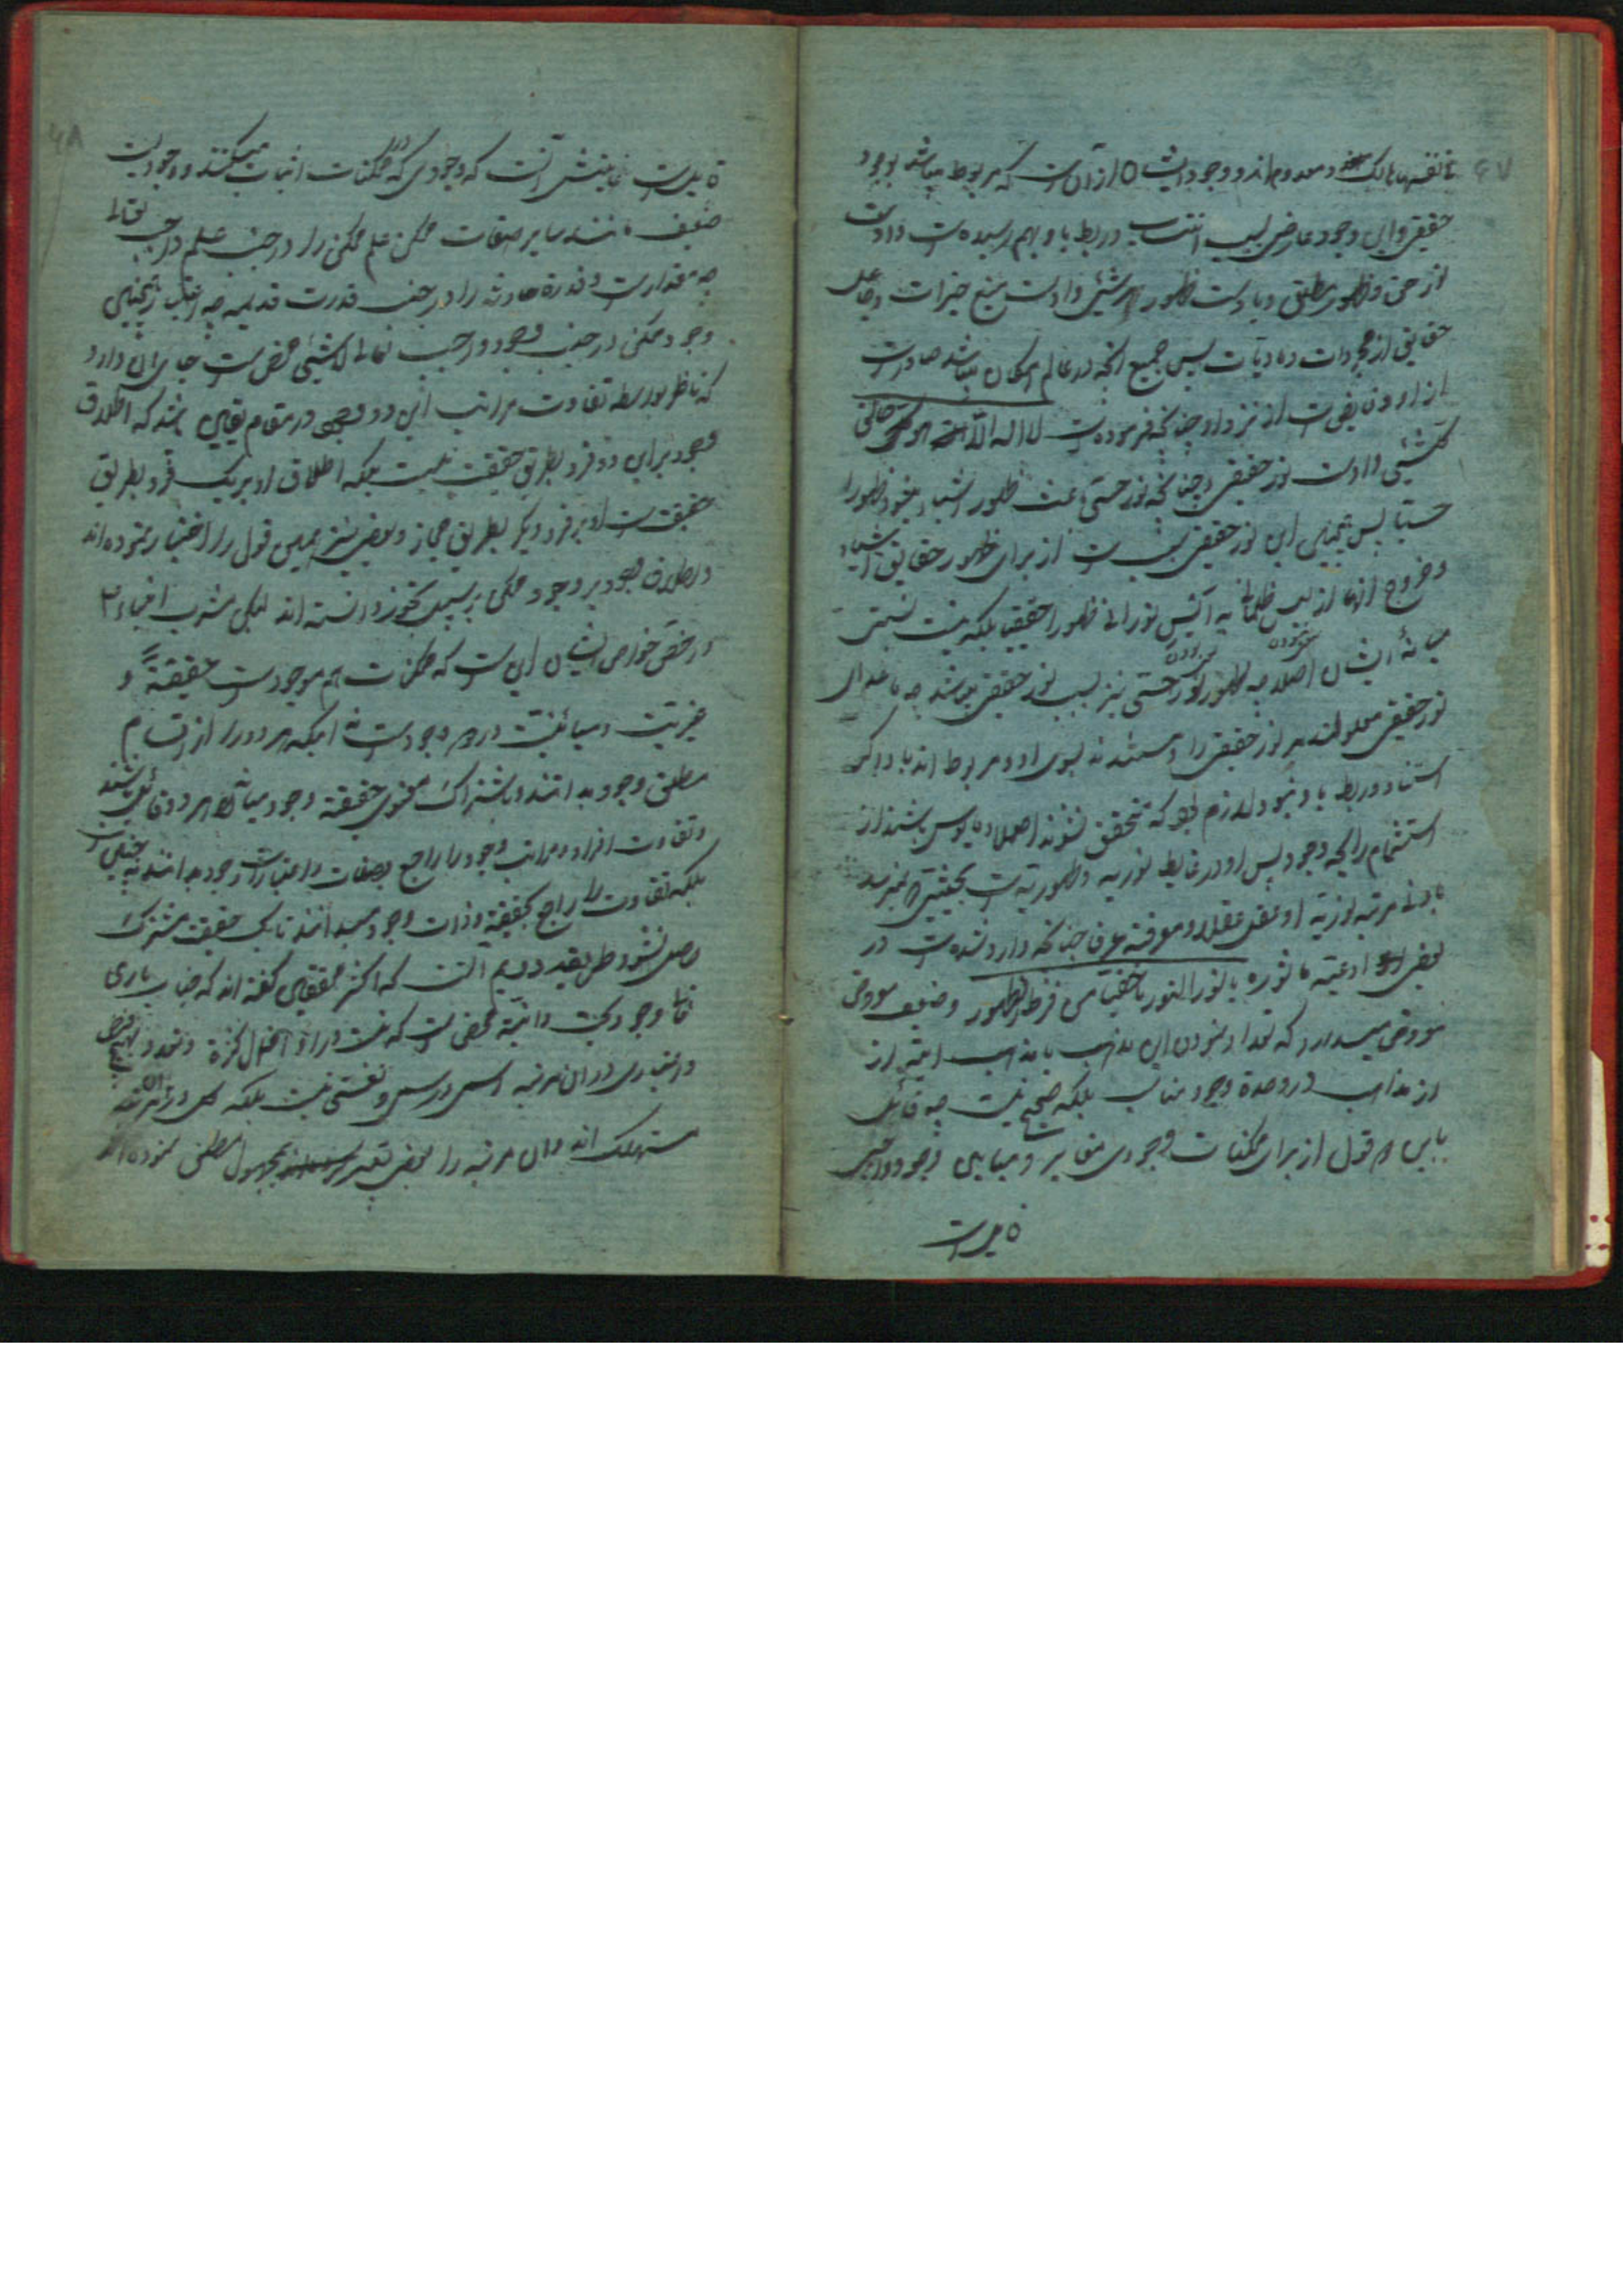 فانفسها هالک و معدوم‌اند و وجود ایشان از آن است که مربوط میباشند بوجود
حقیقی و این وجود عارضی بسبب انتساب و ربط باو بهم رسیده است و اوست
نور حق و ظهور مطلق و باوست ظهور هر شیئی و اوست منبع خیرات و جاعل
حقایق از مجردات و مادیات پس جمیع آنچه در عالم امکان میباشد صادر است
از او و فایض است از نزد او چنانکه فرموده است لا اله الا هو خالق
کلشیئی و اوست نور حقیقی و چنانکه نور حسی باعث ظهور اشیاء میشود ظهورا
حسیا پس همچنین این نور حقیقی سبب است از برای ظهور حقایق اشیاء
و خروج آنها از لیس ظلمانی به ایس نورانی ظهورا حقیقیا بلکه نیست نسبتی
میانهٔ ایشان اصلا چه ظهور نور حسی نیز بسبب نور حقیقی میباشد چه ما عدای
نور حقیقی معلولند مر نور حقیقی را و مستندند بسوی او و مربوط‌اند باو و اگر
استناد و ربط باو نبود لازم بود که متحقق نشوند اصلا و مایوس باشند از
استشمام رایحه وجود پس او در غایط نوریه و ظهوریه است بحیثیتی که نمیرسد
بادنی مرتبه نوریه او عقل عقلا و معرفة عرفا چنانکه وارد شده است در
بعضی ادعیه ماثوره یا نور النور یا خفیا من فرط الظهور و ضعیف معروض
معروض میدارد که تعداد نمودن این مذهب با مذهب اینیه از
از مذاهب در وحدة وجود مناسب بلکه صحیح نیست چه قائل
باین هم قول از برای ممکنات وجودی مغایر و مباین وجود واجبی
قایل است
قایل است غایتش آنست که وجودی که در ممکنات اثبات میکنند وجودیست
ضعیف مانند سایر صفات ممکن علم ممکن را در جنب علم واجب تعالی
چه مقدار است و قدرة حادثه را در جنب قدرت قدیمه چه اعتبار همچنین
وجود ممکن در جنب وجود واجب تعالی لاشیئی محض است جای آن دارد
که ناظر بواسطه تفاوت مراتب این دو وجود در مقام یقین باشد که اطلاق
وجود بر این دو فرد بطریق حقیقت نیست بلکه اطلاق او بر یک فرد بطریق
حقیقت است و بر فرد دیگر بطریق مجاز و بعضی نیز همین قول را اختیار نموده‌اند
و اطلاق وجود بر وجود ممکن بر سبیل تجوز دانسته‌اند لیکن مشرب انبیاء
و اخص خواص ایشان این است که ممکنات هم موجود است حقیقة و
غیریت و مباینت در هر موجود است بلکه هر دو را از اقسام
مطلق وجود بدانند و باشتراک معنوی حقیقة وجود میان هر دو قائل باشند
و تفاوت افراد و مراتب وجود را راجع بصفات و اعتبارات وجود بدانند نه چنین است
بلکه تفاوت را راجع بحقیقة و ذات وجود میدانند تا یک حقیقت مشترک
حاصل نشود طریقه دویم آنست که اکثر محققین گفته‌اند که جناب باری
تعالی وجود بحت و انیة محض است که نیست در او احتمال کثرة و تعدد
و اعتباری در آن مرتبه اسمی و رسمی و نعتی نیست بلکه کل در آن مرتبه
مستهلک‌اند و آن مرتبه را بعضی تعبیر بمجهول مطلق نموده‌اند